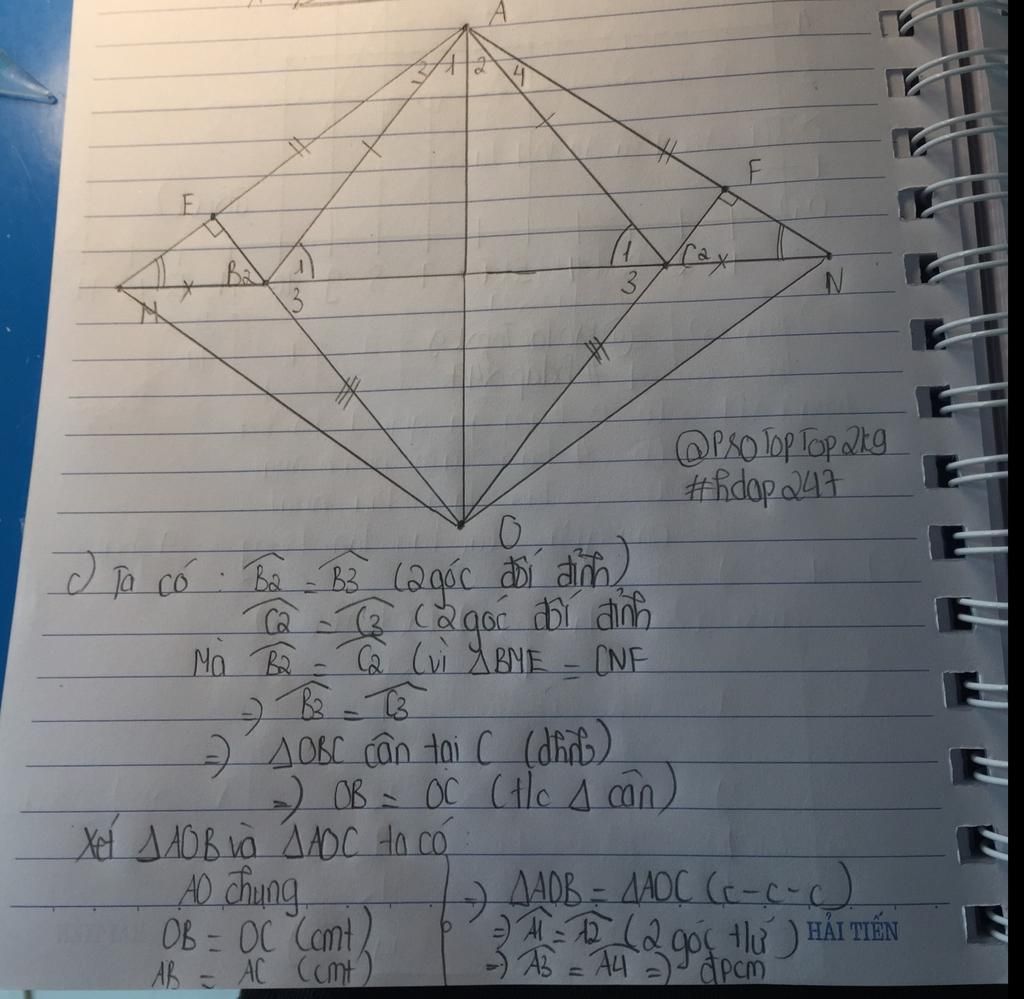 A
3 1 2 4
E
F
B2 1
1 C2
3
3
M
N
O
@PSOTopTop2kg
#hdap247
c) Ta có : B2 = B3 (2góc đối đỉnh)
C2 = C3 (2góc đối đỉnh
Mà B2 = C2 (vì ΔBME = CNF
=) B3 = C3
=) ΔOBC cân tại C (dhnb)
=) OB = OC (t/c Δ cân)
Xét ΔAOB và ΔAOC ta có :
AO chung
OB = OC (cmt)
AB = AC (cmt)
=) ΔAOB = ΔAOC (c-c-c)
=) A1 = A2 (2 góc t/ứ)
=) A3 = A4 =) đpcm
HẢI TIẾN